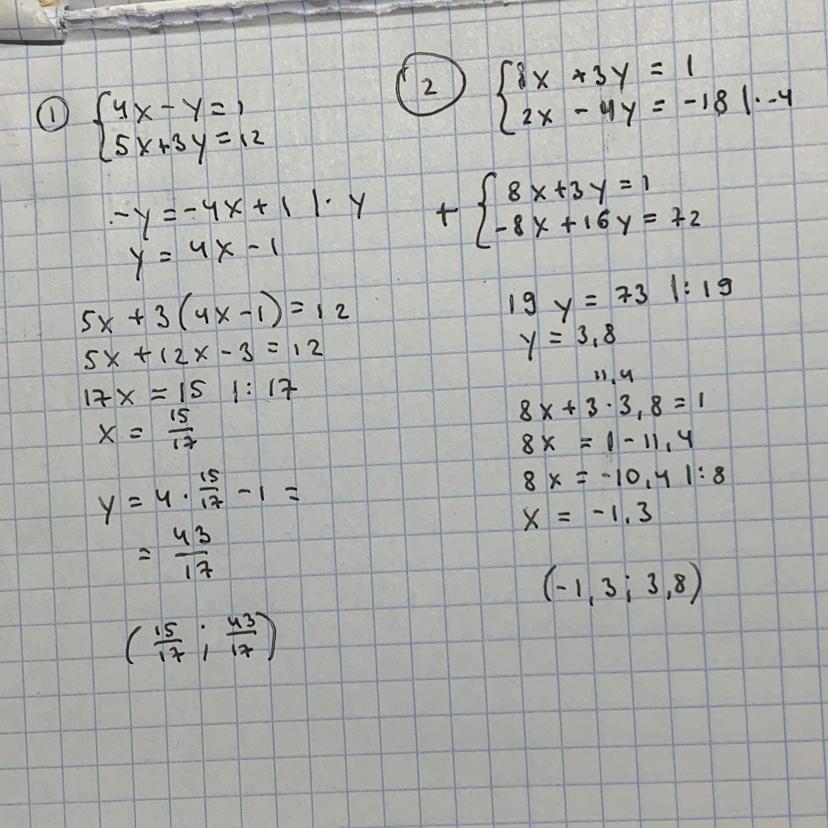 ① {4x - y = 1
5x + 3y = 12
-y = -4x + 1 |· y
y = 4x - 1
5x + 3(4x - 1) = 12
5x + 12x - 3 = 12
17x = 15 |: 17
x = 15/17
y = 4 · 15/17 - 1 =
= 43/17
(15/17 ; 43/17)
② {8x + 3y = 1
2x - 4y = -18 |· -4
+ {8x + 3y = 1
-8x + 16y = 72
19 y = 73 |: 19
y = 3,8
11,4
8x + 3 · 3,8 = 1
8x = 1 - 11,4
8x = -10,4 |: 8
x = -1,3
(-1,3 ; 3,8)